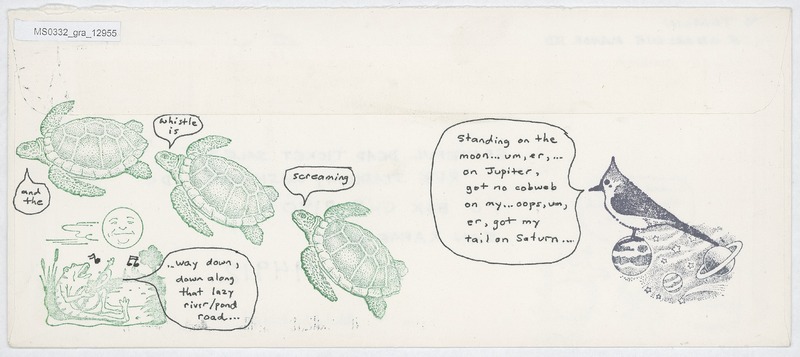 MS0332_gra_12955
and
the
whistle
is
screaming
.. way down,
down along
that lazy
river/pond
road...
Standing on the
moon... um, er, ...
on Jupiter,
got no cobweb
on my... oops, um,
er, got my
tail on Saturn....